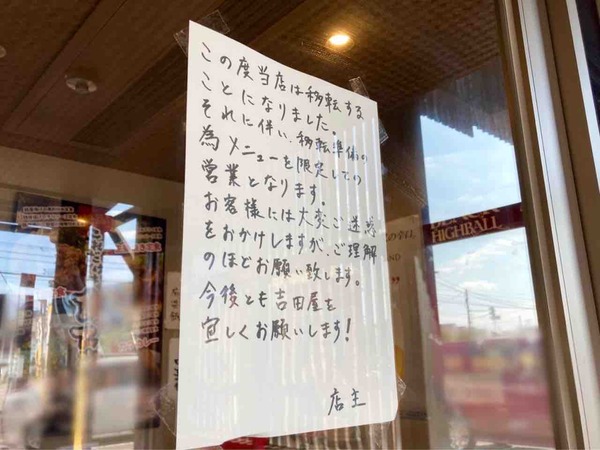 この度当店は移転する
ことになりました。
それに伴い、移転準備の
為メニューを限定しての
営業となります。
お客様には大変ご迷惑
をおかけしますが、ご理解
のほどお願い致します。
今後とも吉田屋を
宜しくお願いします!
店主
HIGHBALL